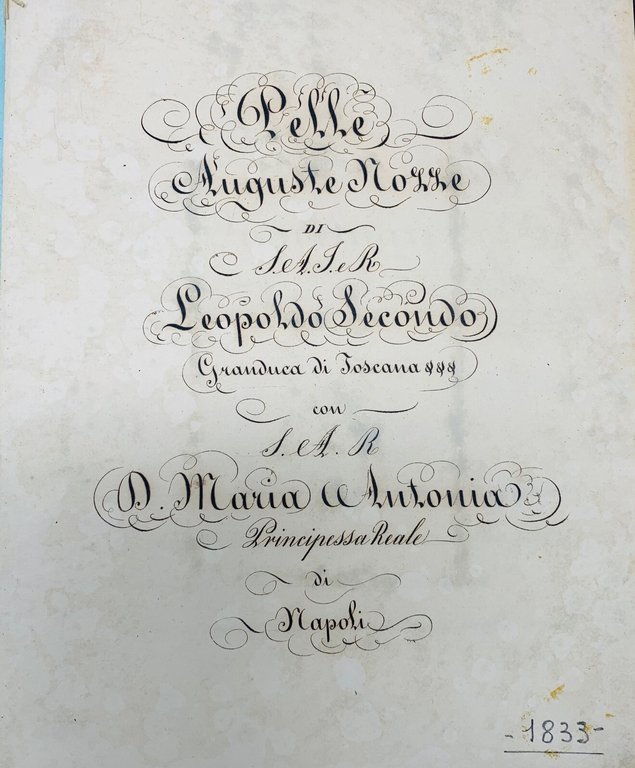 Pelle
Auguste Nozze
DI
S. A. I. e R
Leopoldo Secondo
Granduca di Toscana $$$
con
S. A. R
D. Maria Antonia
Principessa Reale
di
Napoli
- 1833 -